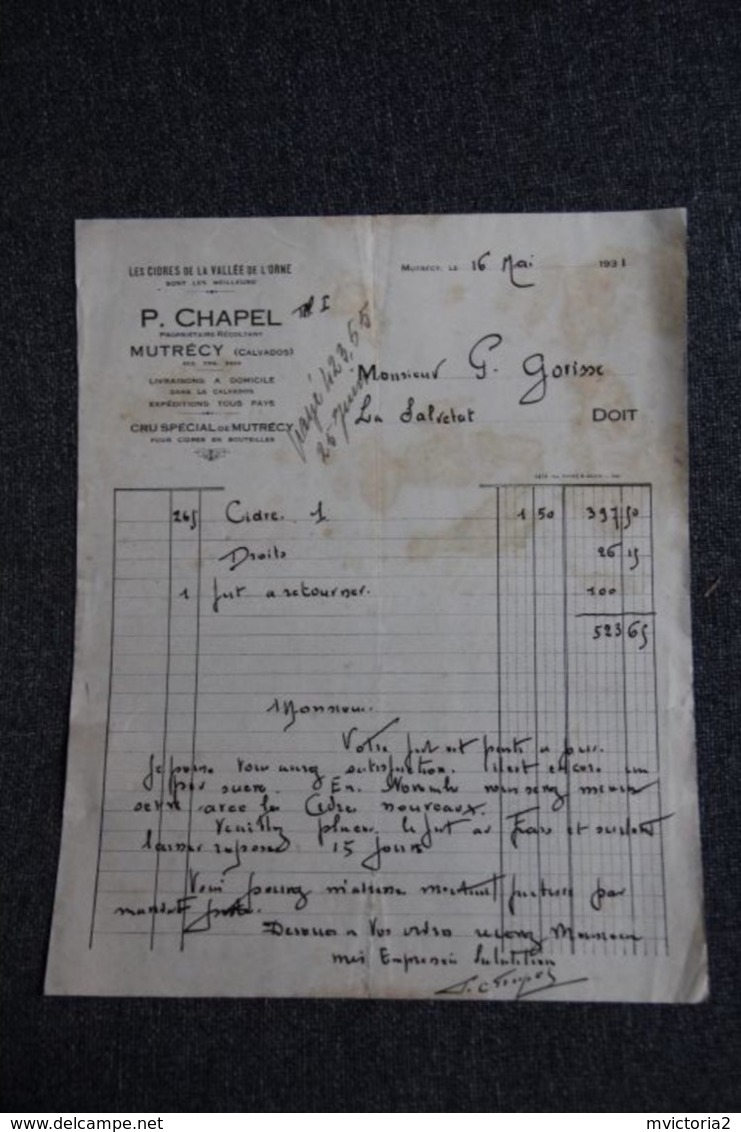 LES CIDRES DE LA VALLÉE DE L'ORNE
SONT LES MEILLEURS
P. CHAPEL
PROPRIÉTAIRE-RÉCOLTANT
MUTRÉCY (CALVADOS)
LIVRAISONS A DOMICILE
DANS LE CALVADOS
EXPÉDITIONS TOUS PAYS
CRU SPÉCIAL DE MUTRÉCY
POUR CIDRES EN BOUTEILLES
MUTRÉCY, LE 16 Mai 1931
payé 423,65
25 juin
Monsieur G. Gorisse
La Salvetat DOIT
265 Cidre 1 1 50 397 50
Droits 26 15
1 fut a retourner. 100
523 65
Monsieur.
Votre fut est parti a jour.
Je pense vous aurez satisfaction. Il est encore un
peu sucre. En
avec le Cidre nouveaux.
Veuillez placer le fut au Frais et surtout
laisser reposer 15 jours
Vous pouvez m'adresse montant facture par
mandat poste.
Devoue a Vos ordres recevez Monsieur
mes Empressées Salutation
P. Chapel
delcampe.net
mvictoria2